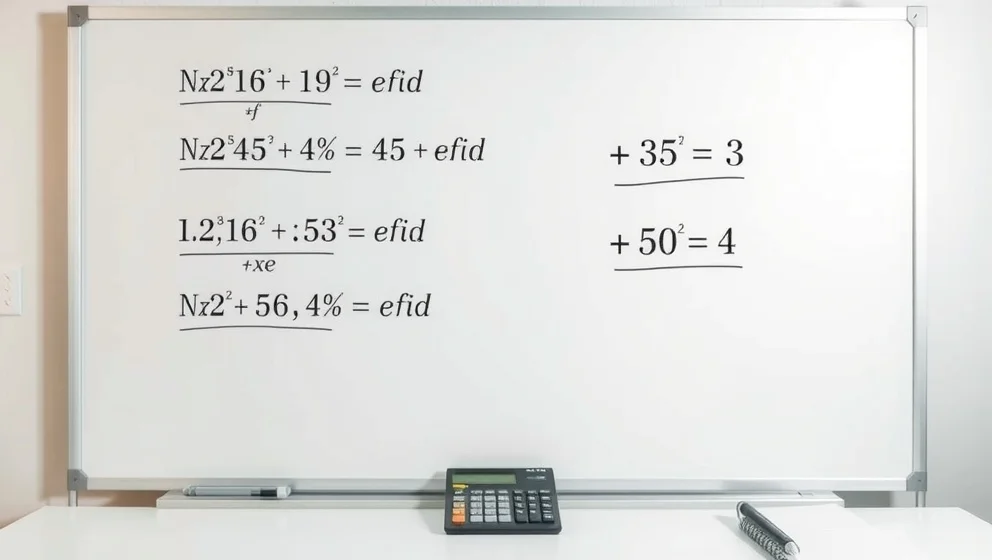 Nz2⁵16³ + 19² = efid
+f
Nz2⁵45³ + 4% = 45 + efid
1.2,³16² + :53² = efid
+xe
Nz2² + 56, 4% = efid
+ 35² = 3
+ 50² = 4